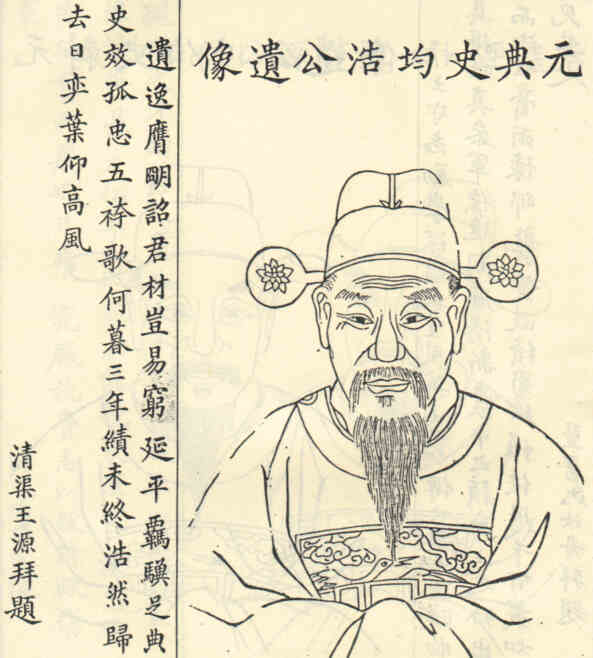 元典史均浩公遺像
遺逸膺眀詔君材豈易窮延平覊驥足典
史效孤忠五袴歌何暮三年績未終浩然歸
去日奕葉仰高風
清渠王源拜題